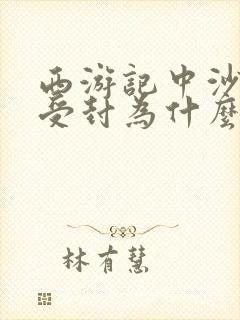 西游記中沙
受封為什麼
林有慧